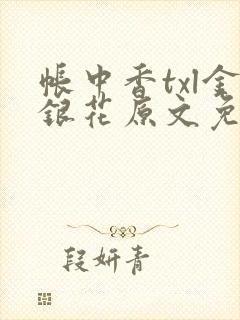 帳中香txl金
銀花原文免
段妍青